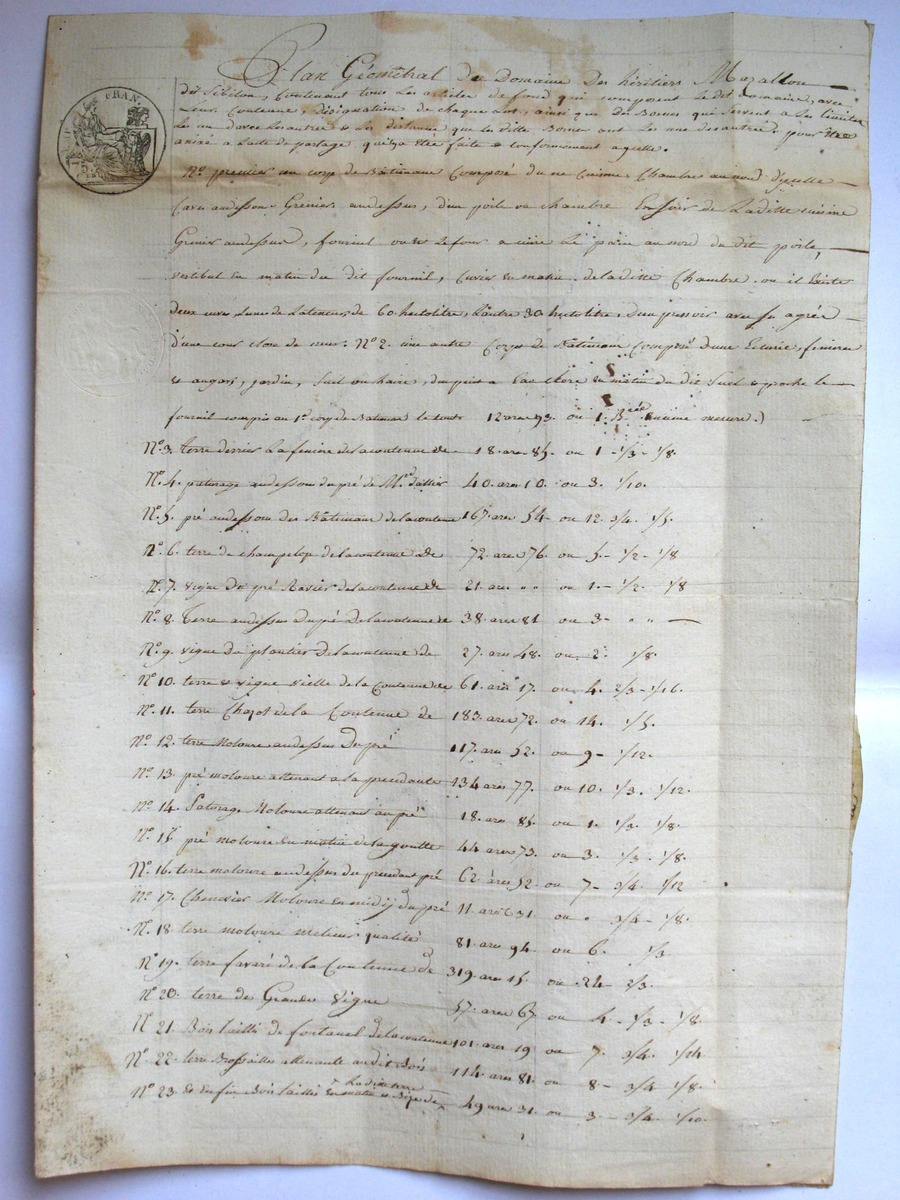 FRAN.
Plan Géométral du Domaine Des héritiers Mazallon
dit Sibilon, Contenant tous les articles de fond qui composent le dit Domaine, avec
Leurs Contenue, désignation de chaque Lot, ainsi que Des Bornes qui servent a Les limiter
Les un d'avec les autres & Les distance que les ditte Bornes ont les une des autres, pour être
anéxé a Lacte de partage qui a étée faite & conformément a icelle.
N.º premier un corps de Bâtiment Composé d'une Cuisine, Chambre au nord d'icelle
Cave audessou Grenier audessus, d'un poile ou chambre En soir de Laditte cuisine
Grenier audessus, fourniel ou est Le four a cuire Le pain au nord du dit poile,
vestibul En matin du dit fourniel, Cuvier En matin de la ditte Chambre ou il Existe
deux cuves Lune de Lateneur de 60 hectolitre, Lautre 30 hectolitre, d'un pressoir avec ses agrée
d'une cour close de murs: N.º 2. une autre Corps de Bâtiment Composé d'une Ecurie, feniere
& angari, jardin, Suel ou haire, du puits a Eau Clere En matin du dit Suel & proche le
fourniel compris au 1.er corp de Batiment le tout 12 ares 93. ou 1. ancienne mesure.)
N.º 3. terre derrier La feniere de la contenue de 18. ares 85. ou 1 - 1/3 - 1/8.
N.º 4. paturage audessou du pré de 40. ares 10. ou 3. 1/10.
N.º 5. pré audessou des Bâtiments de la contenue 167. ares 54 - ou 12. 3/4. 1/5.
N.º 6. terre de champelop de la contenue de 72. ares 76. ou 5 - 1/2 - 1/8
N.º 7. vigne du pré Ravier de la contenue de 21. ares " " ou 1 - 1/2. 1/8
N.º 8. Terre audessus du pré De la contenue de 38. ares 81 ou 3 - " "
N.º 9. vigne du plantier de la contenue de 27. ares 48. ou 2. 1/8.
N.º 10. terre & vigne vielle de la Contenue de 61. ares 17. ou 4. 2/3 - 1/16.
N.º 11. terre Chapot de la Contenue de 183. ares 72. ou 14. 1/5.
N.º 12. terre Moloure audessus Du pré 117. ares 52. ou 9 - 1/12.
N.º 13. pré moloure attenant a la precedante 134 ares 77. ou 10. 1/3. 1/12.
N.º 14. Paturage Moloure attenant au pré 18. ares 85. ou 1. 1/3. 1/8.
N.º 15. pré moloure En matin de la goutte 44 ares 73. ou 3. 1/3 - 1/8.
N.º 16. terre moloure audessus du precedant pré 62. ares 52. ou 7 - 3/4. 1/12
N.º 17. Chenevier Moloure En midi du pré 11. ares 31 ou " 3/4 - 1/8.
N.º 18. terre moloure meilieur qualité 81. ares 94. ou 6. 1/3
N.º 19. terre favaré de la Contenue de 319. ares 15. ou 24 - 2/3.
N.º 20. terre des Grande Vigne 57. ares 65 ou 4 - 1/3 - 1/8.
N.º 21. Bois taillé de fontanel de la contenue 101. ares 19 ou 7. 3/4. 1/24
N.º 22. terre Brossailles attenante au dit Bois 114. ares 81. ou 8 - 3/4 1/8.
N.º 23. & En fin Bois taillés En matin & Bize de La dite terre 49 ares 31. ou 3 - 3/4. 1/10.